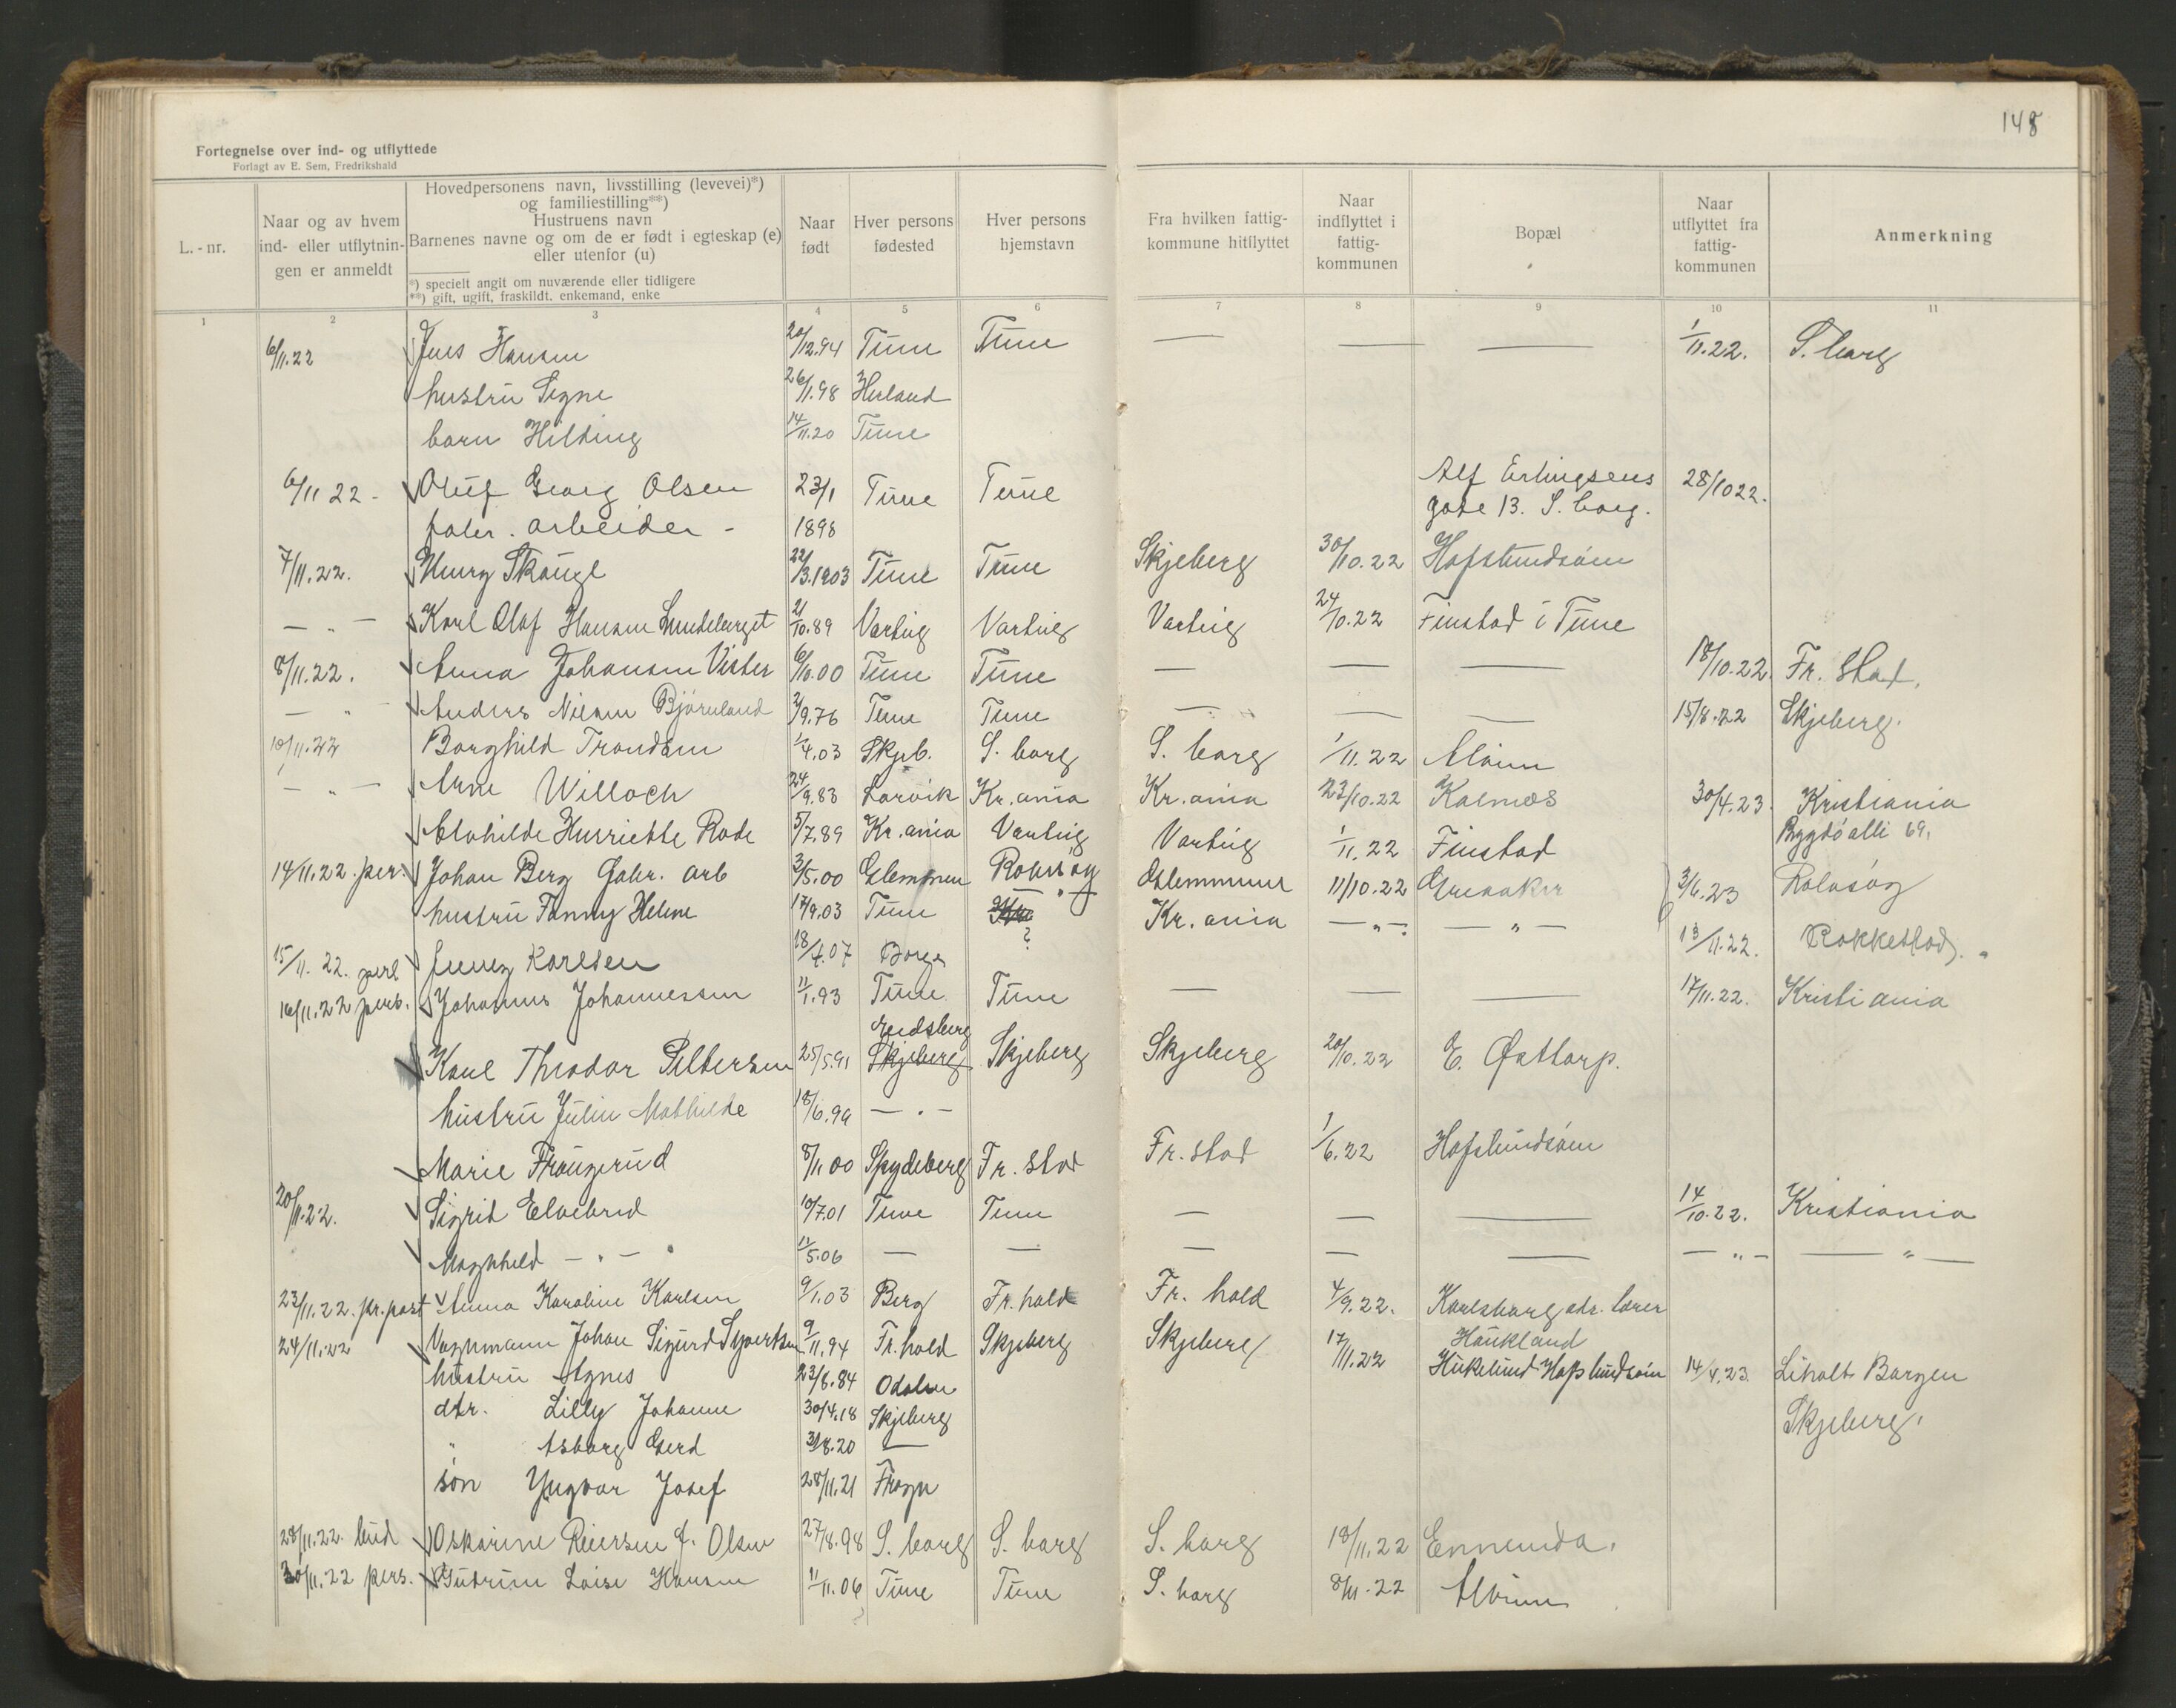 148
Fortegnelse over ind- og utflyttede
Forlagt av E. Sem, Fredrikshald
L.-nr.
Naar og av hvem ind- eller utflytningen er anmeldt
Hovedpersonens navn, livsstilling (levevei)*)
og familiestilling**)
Hustruens navn
Barnenes navne og om de er født i egteskap (e)
eller utenfor (u)
*) specielt angit om nuværende eller tidligere
**) gift, ugift, fraskildt, enkemand, enke
Naar født
Hver persons fødested
Hver persons hjemstavn
Fra hvilken fattigkommune hitflyttet
Naar indflyttet i fattigkommunen
Bopæl
Naar utflyttet fra fattigkommunen
Anmerkning
1 2 3 4 5 6 7 8 9 10 11
6/11.22 Jens Hansen 20/12.94 Tune Tune — — — 1/11.22. S.borg
hustru Signe 26/1.98 Herland
barn Hilding 14/11.20 Tune
6/11 22 - Oluf Georg Olsen 23/1 Tune Tune Alf Erlingsens 28/10 22.
fabr. arbeider - 1898 gate 13. S.borg.
7/11.22. Henry Skauge 22/3.1903 Tune Tune Skjeberg 30/10.22 Hafslundsøen
— " — Karl Olaf Hansen Lundeberget 21/10.89 Varteig Varteig Varteig 24/10.22 Finstad i Tune
8/11.22. Anna Johansen Vister 6/10.00 Tune Tune — — — 18/10.22. Fr. stad.
— " — Anders Nilsen Bjørnland 2/9.76 Tune Tune — — — 15/8.22 Skjeberg.
10/11.22 Borghild Trondsen 1/4.03 Skjeb. S.borg S.borg 1/11.22 Alvim
— " — Arne Willoch 24/9.83 Larvik Kr.ania Kr.ania 23/10.22 Kalnæs 30/4.23. Kristiania
Bygdø alli 69.
Henriette Rode 5/7.89 Kr.ania Varteig Varteig 1/11.22 Finstad
14/11.22. per. Johan Berg fabr. arb 3/5.00 Glemmen Rolvsøy Glemmen 11/10.22 Greaaker 3/6.23 Rolvsøy
hustru Fanny Helene 17/9.03 Tune — " — Kr.ania — " — — " —
15/11.22. Jenny Karlsen 18/4.07 Borge ? 13/11.22. Rakkestad.
16/11.22 pers. Johannes Johannessen 11/1.93 Tune Tune — — — 17/11.22. Kristiania
Eidsberg
Karl Theodor Pettersen 25/5.91 Skjeberg Skjeberg Skjeberg 20/10.22 E. Østtorp.
hustru Julie Mathilde 18/6.99 — " —
Marie Frauserud 8/11 00 Spydeberg Fr.stad Fr.stad 1/6.22 Hafslundsøen
20/11.22. Sigrid Elvebred 10/7.01 Tune Tune — — — 14/10.22. Kristiania
Magnhild — " — 11/5.06 — — — — — — " — — " —
23/11.22. pr. post Anna Karoline Karlsen 9/1.03 Berg Fr.hald Fr.hald 4/9.22. Karlsborg adr. lærer
Haukland
24/11.22 Vognmann Johan Sigurd Syvertsen 9/11.94 Fr.hald Skjeberg Skjeberg 17/11.22 Hukelund Hafslundsøen 14/4.23. Liholt Borgen
hustru Agnes 23/8.84 Odalen
Skjeberg.
dtr. Lilly Johanne 30/4.18 Skjeberg
" Asborg Gerd 31/8.20 —
søn Yngvar Josef 28/11.21 Frogn
28/11.22. bud Oskarine Reiersen f. Olsen 27/8.98 S.borg S.borg S.borg 18/11.22 Ennenda.
30/11.22 pers. Gudrun Loise Hansen 11/11.06 Tune Tune S.borg 8/11.22 Alvim